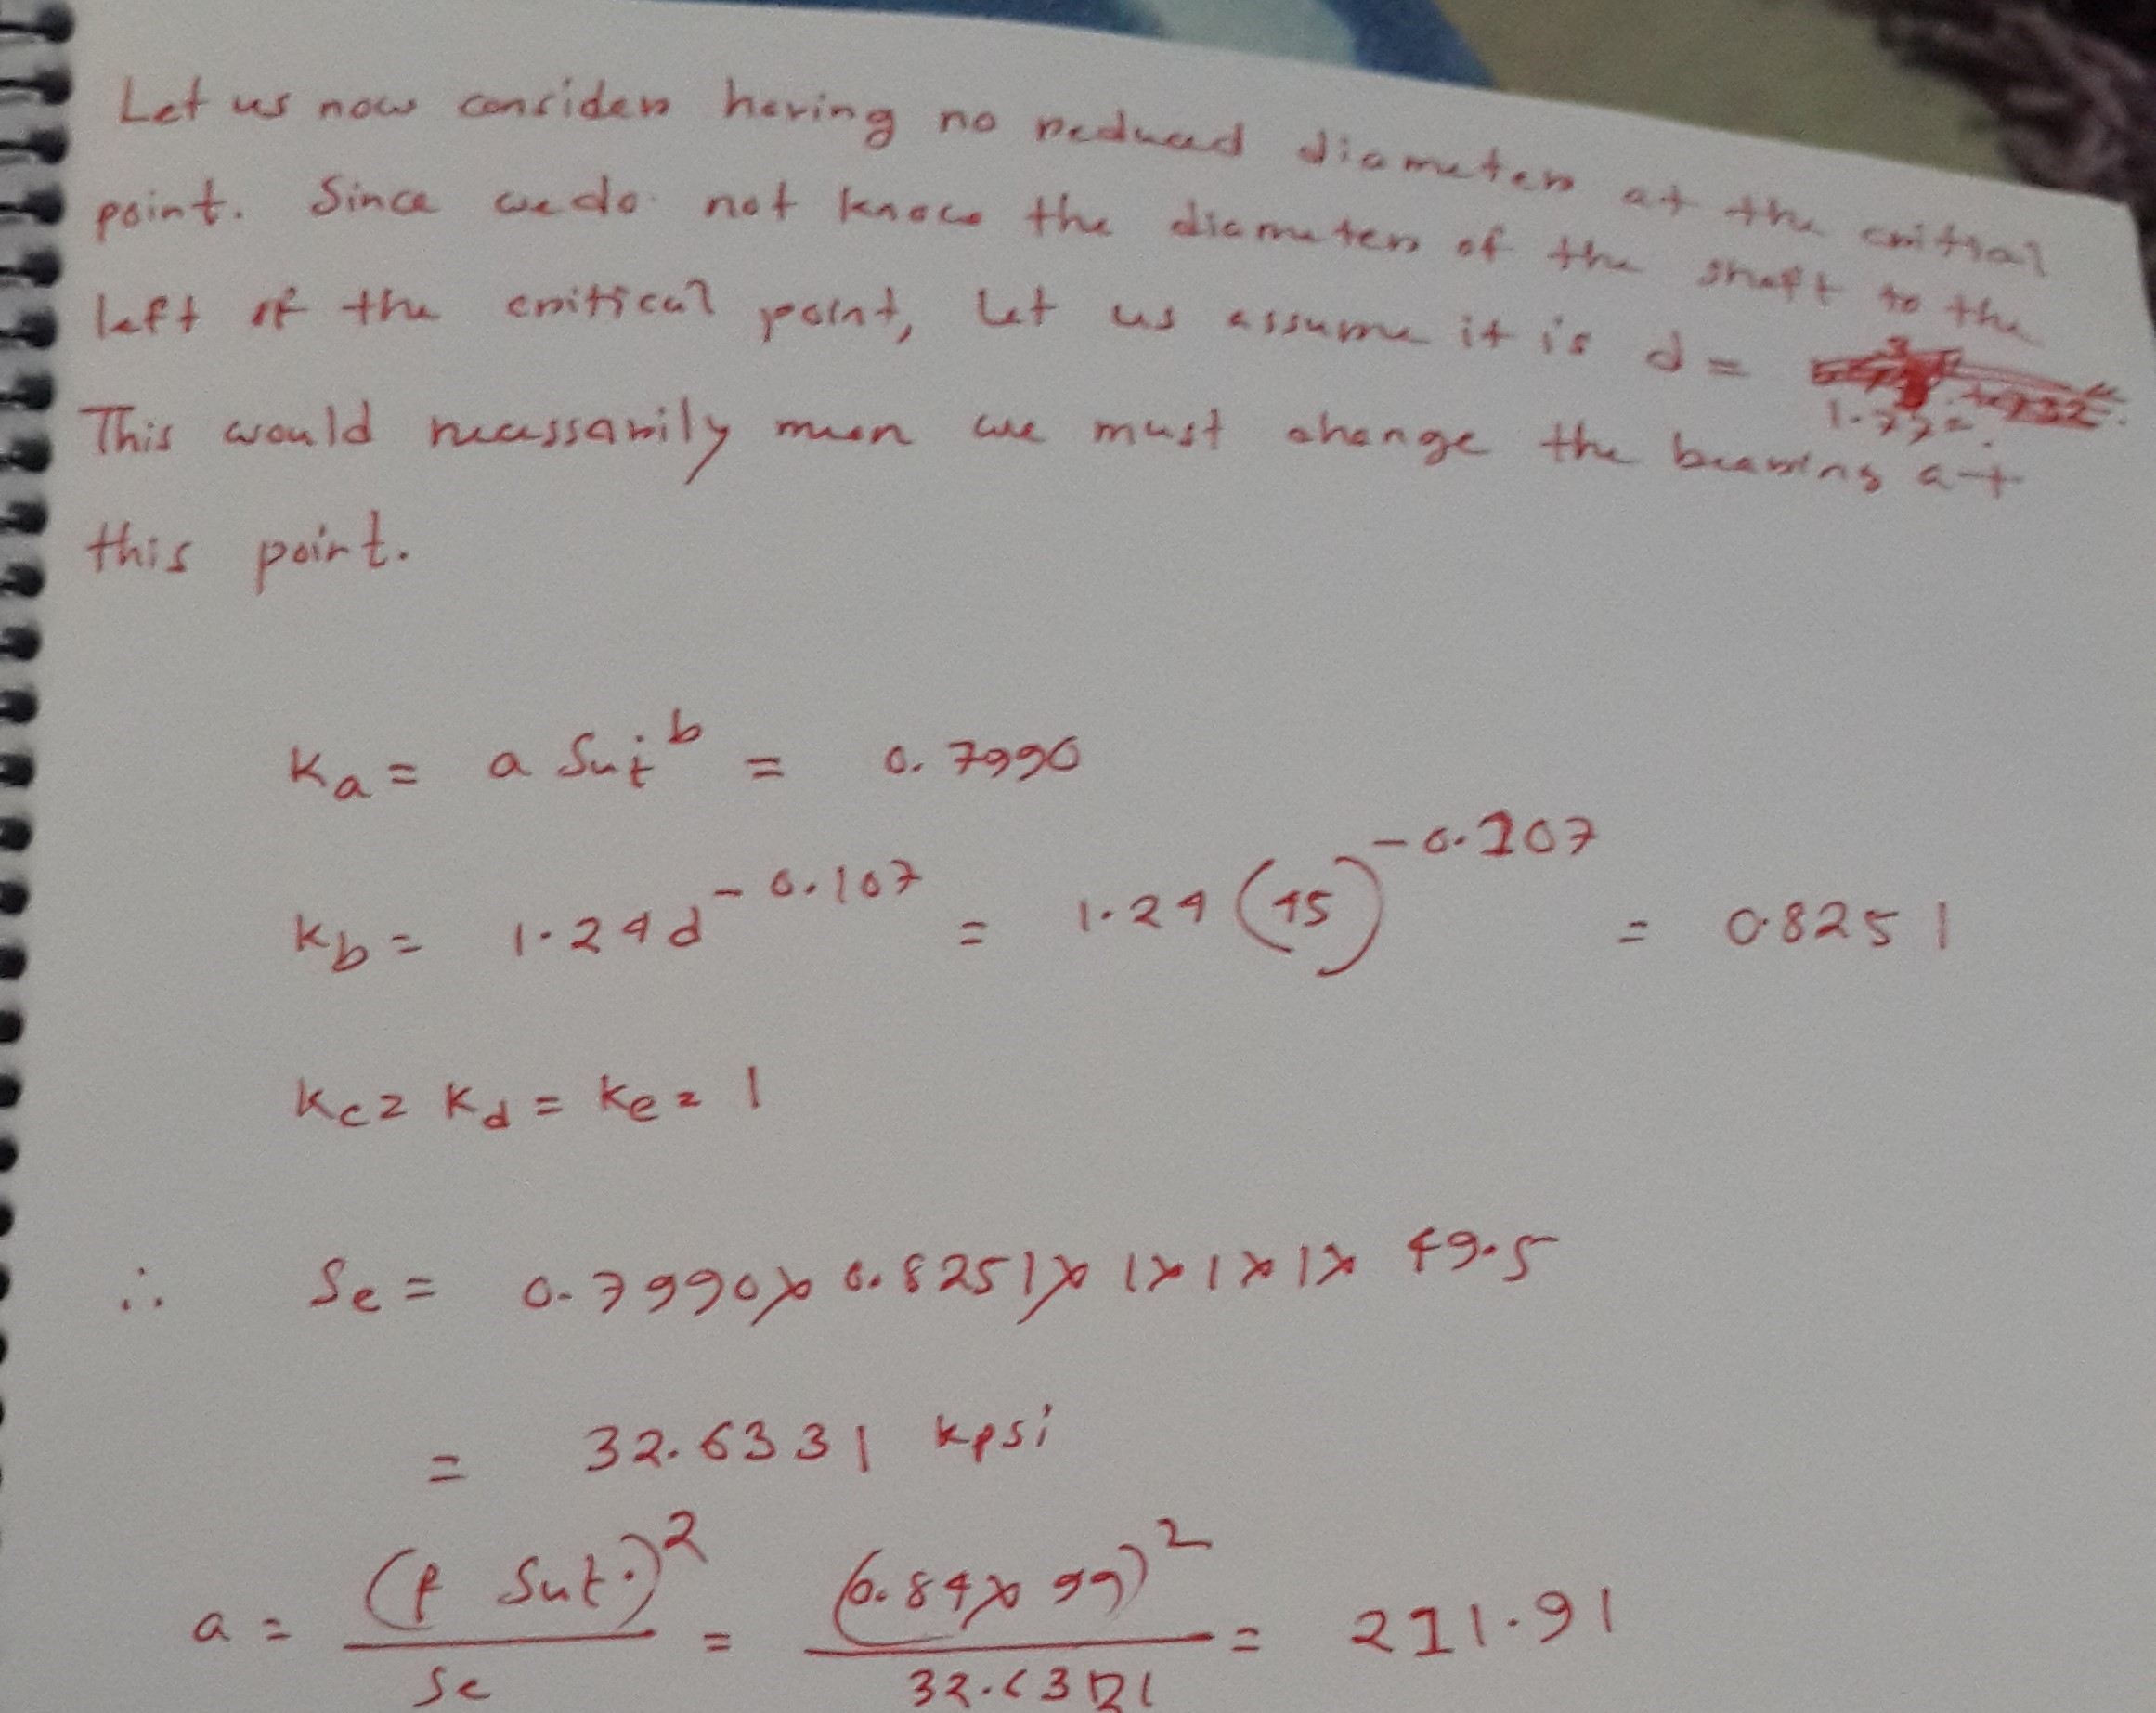 Let us now consider having no reduced diameter at the critial
point. Since we do not know the diameter of the shaft to the
left of the critical point, let us assume it is d =
1.772.
This would necessarily mean we must change the bearing at
this point.
Ka = a Sut^b = 0.7990
Kb = 1.24d^-0.107 = 1.24 (45)^-0.107 = 0.8251
Kc = Kd = Ke = 1
∴ Se = 0.7990 x 0.8251 x 1 x 1 x 1 x 49.5
= 32.6331 kpsi
a = (f Sut)^2 / Se = (0.84 x 99)^2 / 32.6331 = 211.91